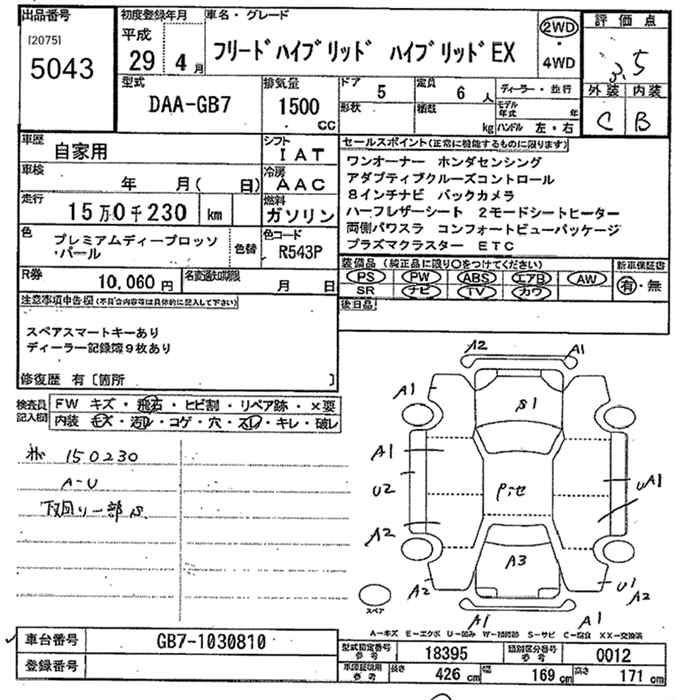 出品番号
[2075]
5043
初度登録年月
平成
29 4月
車名・グレード
フリードハイブリッド ハイブリッドEX
2WD
・
4WD
評価点
3.5
外装 内装
C B
型式
DAA-GB7
排気量
1500
CC
ドア
5
定員
6 人
形状
積載
kg
ディーラー・並行
モデル年式 年
ハンドル 左・右
車歴
自家用
シフト
IAT
車検
年 月( 日)
冷房
AAC
走行
15万0千230 km
燃料
ガソリン
色
プレミアムディープロッソ
・パール
色替
色コード
R543P
R券
10,060円
名変期限
月 日
セールスポイント(正常に機能するものに限ります)
ワンオーナー ホンダセンシング
アダプティブクルーズコントロール
8インチナビ バックカメラ
ハーフレザーシート 2モードシートヒーター
両側パワスラ コンフォートビューパッケージ
プラズマクラスター ETC
装備品(純正品に限り○をつけてください)
新車保証書
PS PW ABS エアB AW
SR ナビ TV カワ
有・無
後日品
注意事項申告欄(不具合内容等は具体的に記入して下さい)
スペアスマートキーあり
ディーラー記録簿9枚あり
修復歴 有〔箇所 〕
検査員
記入欄
FW キズ・飛石・ヒビ割・リペア跡・×要
内装 キズ・汚レ・コゲ・穴・スレ・キレ・破レ
150230
A-U
下回り一部S
A2
A1
A1
S1
A1
U2
A2
A2
Pite
UA1
A3
U1
A2
A1
A1
スペア
A-キズ E-エクボ U-凹み W-補修跡 S-サビ C-腐食 XX-交換済
車台番号
GB7-1030810
登録番号
型式指定番号
参考
18395
類別区分番号
参考
0012
車検証現用
参考
長さ
426 cm
幅
169 cm
高さ
171 cm